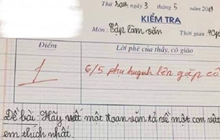 Thứ sáu, ngày 3 tháng 5 năm 2019
KIỂM TRA
Môn: Tập làm văn Thời gian: 40p
Điểm Lời phê của thầy, cô giáo
1 6/5. phụ huynh lên gặp cô
Đề bài: Hãy viết một đoạn văn tả về một con mà
em thích nhất.